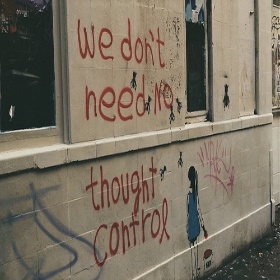 we don't
need No
thought
control